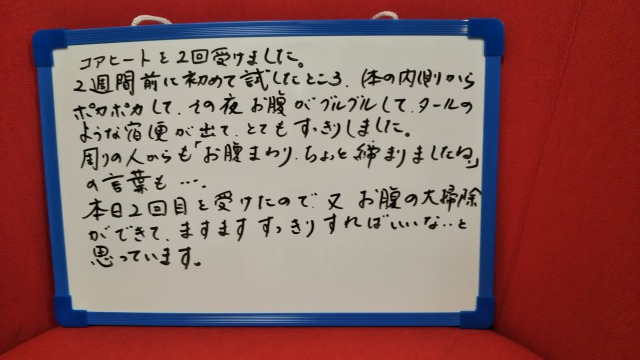 コアヒートを2回受けました。
2週間前に初めて試したところ、体の内側から
ポカポカして、その夜お腹がグルグルして、タールの
ような宿便が出て、とてもすっきりしました。
周りの人からも「お腹まわり、ちょっと締まりましたね」
の言葉も…。
本日2回目を受けたので、又お腹の大掃除
ができて、ますますすっきりすればいいな‥と
思っています。